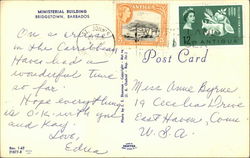 MINISTERIAL BUILDING
BRIDGETOWN, BARBADOS
ANTIGUA
12
ANTIGUA
Post Card
I'm on a cruise
in the Carribbean
Have had a
wonderful time
so far.
Hope everything
is O.K. with you
and Kay.
Love,
Edna
Miss Anne Byrne
19 Cecilia Drive
East Haven, Conn.
U.S.A.